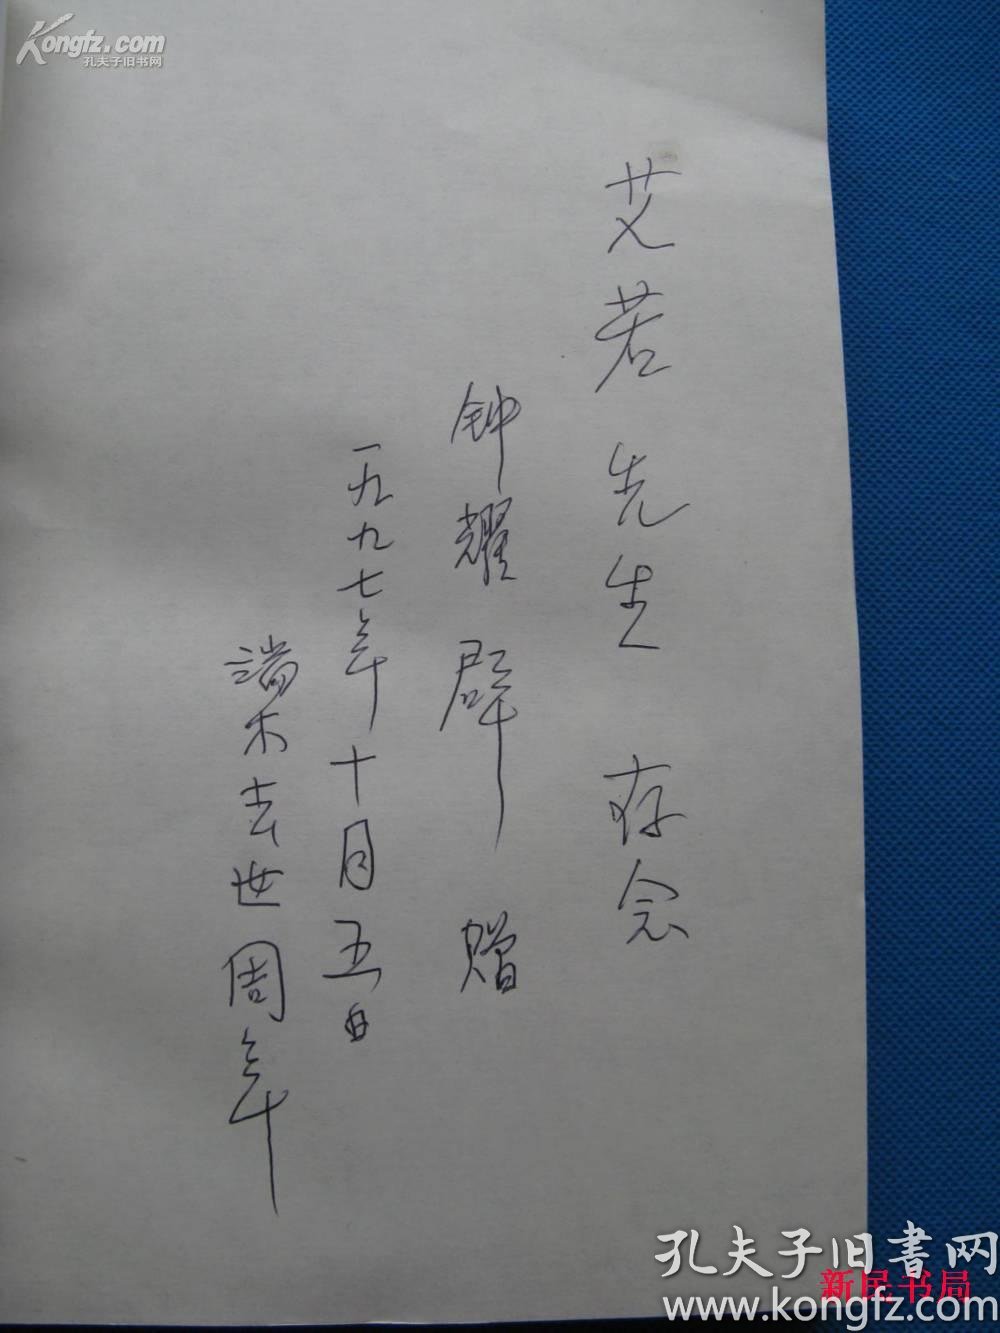 艾若先生 存念
钟耀群 赠
一九九七年十月五日
端木去世周年
Kongfz.com
孔夫子旧书网
孔夫子旧书网
新民书局
www.kongfz.com